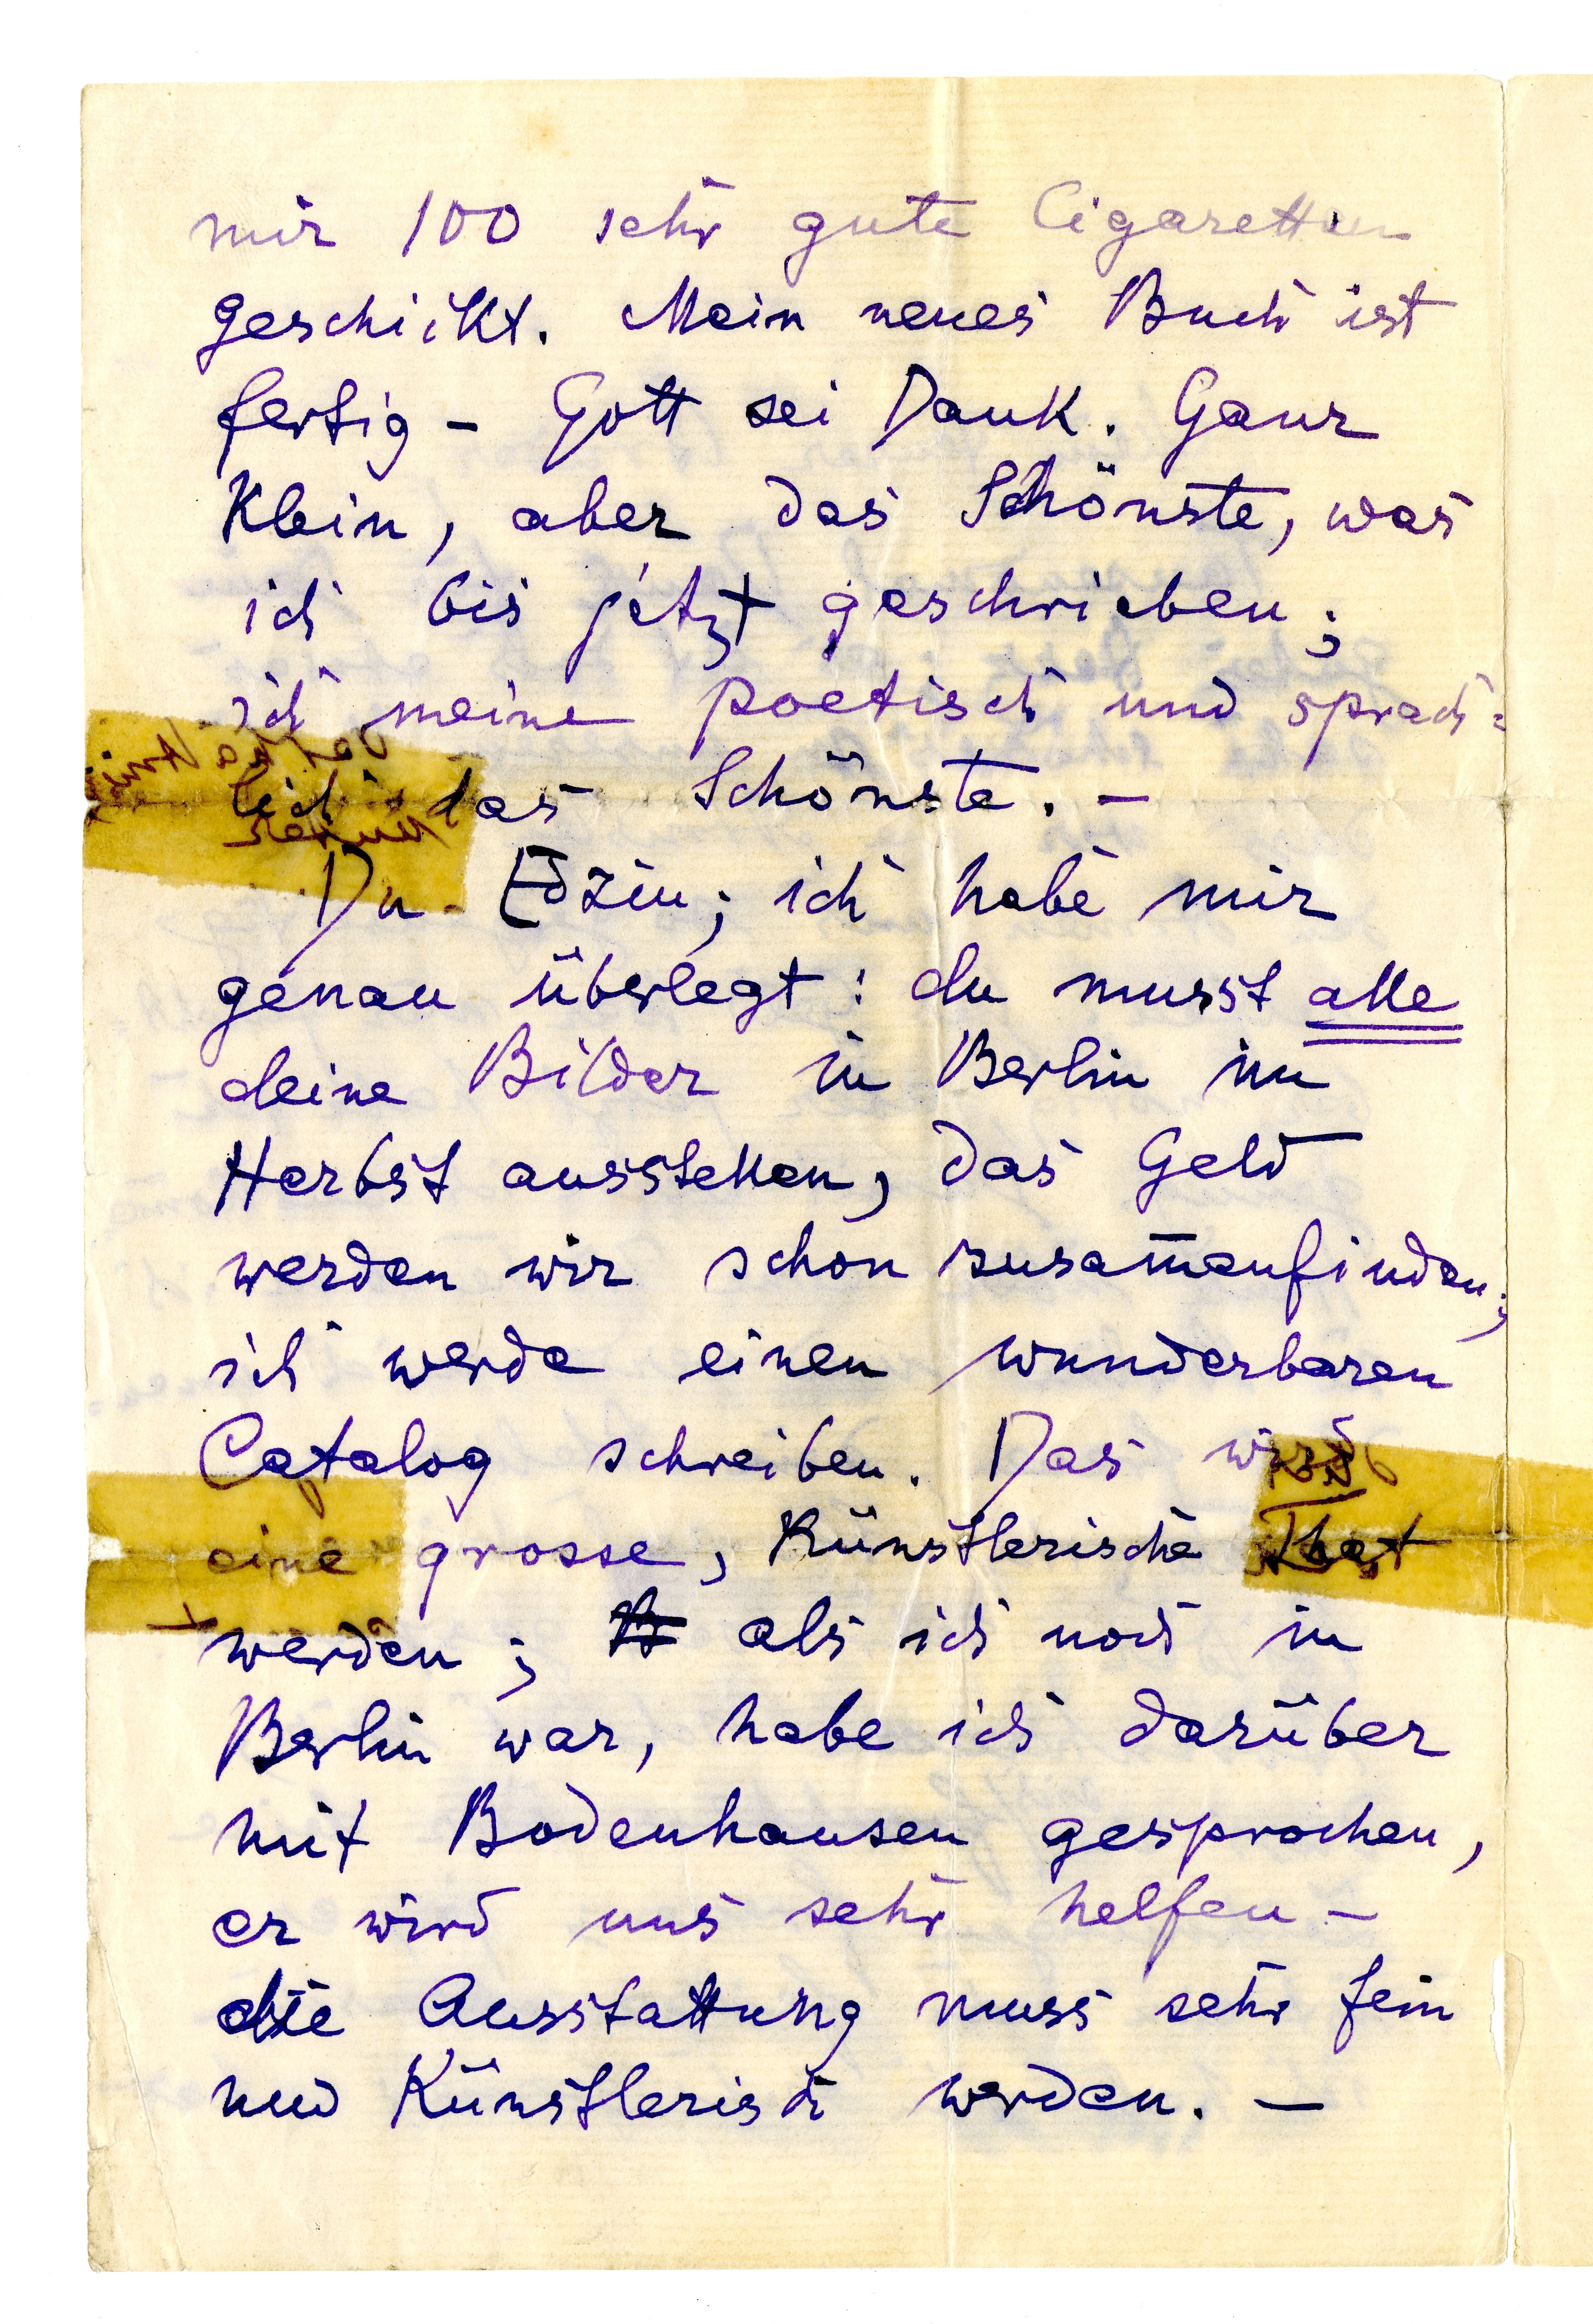 mir 100 sehr gute Cigaretten
geschickt. Mein neues Buch ist
fertig - Gott sei Dank. Ganz
klein, aber das Schönste, was
ich bis jetzt geschrieben;
ich meine poetisch und sprach=
lich das Schönste. -
Du Edziu; ich habe mir
genau überlegt: du musst alle
deine Bilder in Berlin im
Herbst ausstellen, das Geld
werden wir schon zusam̄enfinden;
ich werde einen wunderbaren
Catalog schreiben. Das wird
eine grosse, künstlerische That
werden; als ich noch in
Berlin war, habe ich darüber
mit Bodenhausen gesprochen,
er wird uns sehr helfen -
die Ausstattung muss sehr fein
und künstlerisch werden. -